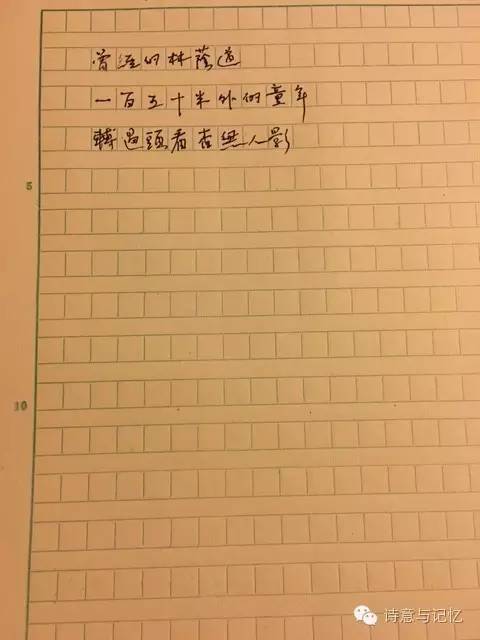 曾经的林蔭道
一百五十米外的童年
轉過頭看杳無人影
5
10
诗意与记忆